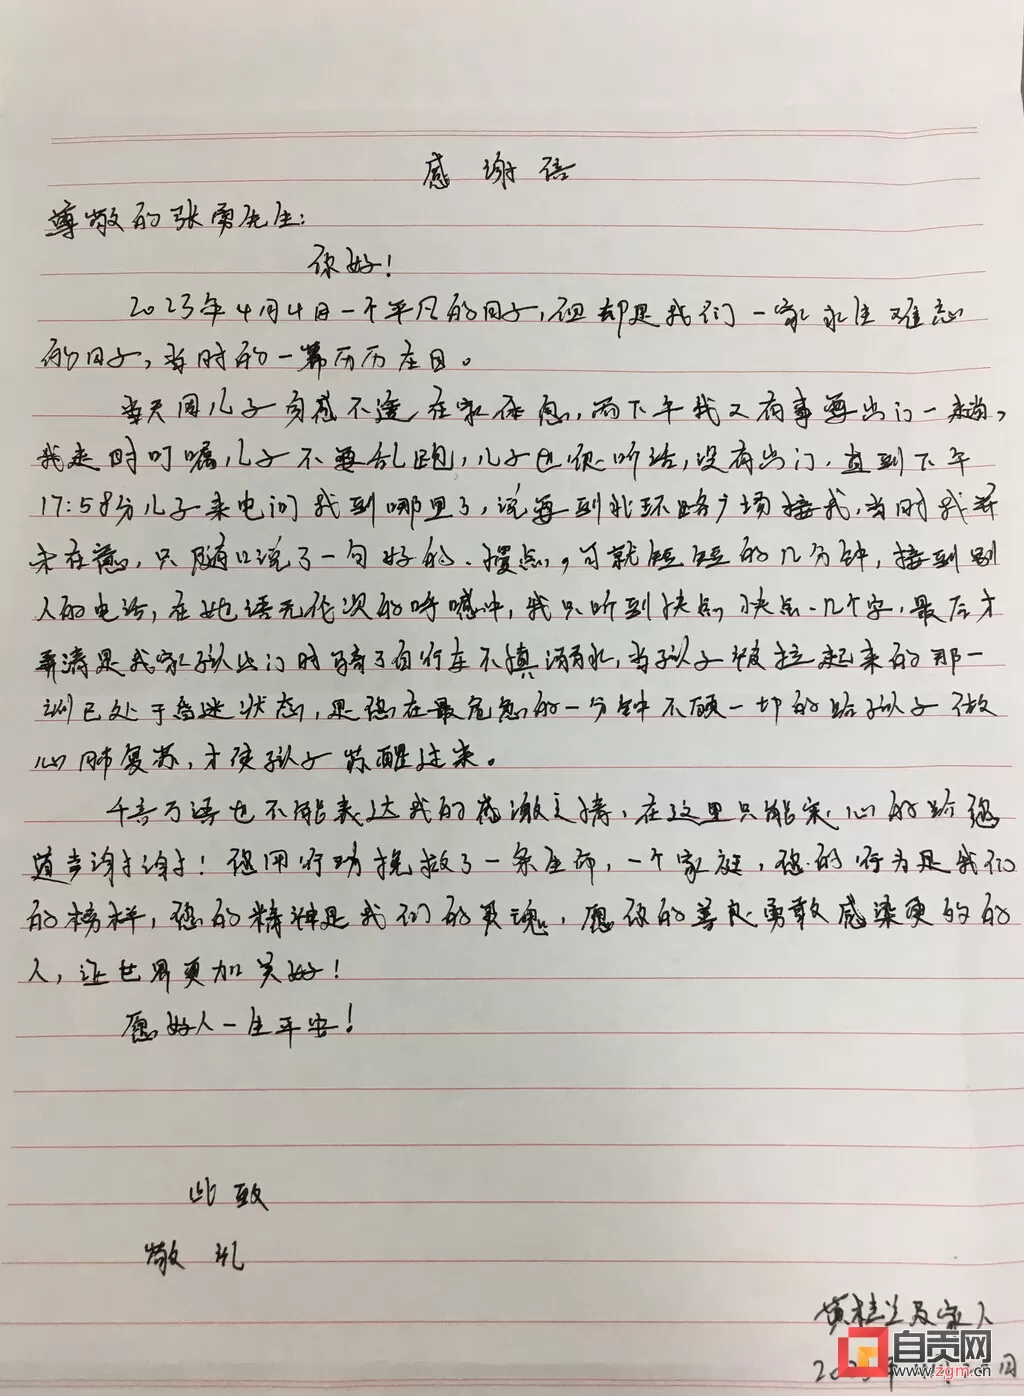 感谢信
尊敬的张勇先生：
你好！
2023年4月4日一个平凡的日子，但却是我们一家永生难忘
的日子，当时的一幕历历在目。
当天因儿子身感不适在家休息，而下午我又有事要出门一趟，
我走时叮嘱儿子不要乱跑，儿子也很听话，没有出门，直到下午
17:58分儿子来电问我到哪里了，说要到北环路广场接我，当时我并
未在意，只随口说了一句好的、慢点，可就短短的几分钟，接到别
人的电话，在她语无伦次的呼喊中，我只听到快点，快点、几个字，最后才
弄清是我家孩出门时骑了自行车不慎溺水，当孩子被拉起来的那一
刻已处于昏迷状态，是您在最危急的一分钟不顾一切的给孩子做
心肺复苏，才使孩子苏醒过来。
千言万语也不能表达我的感激之情，在这里只能衷心的给您
道声谢谢！您用行动挽救了一条生命，一个家庭，您的行为是我们
的榜样，您的精神是我们的灵魂，愿你的善良勇敢感染更的的
人，让世界更加美好！
愿好人一生平安！
此致
敬礼
黄桂兰及家人
2023年 日
自贡网
www.zgm.cn